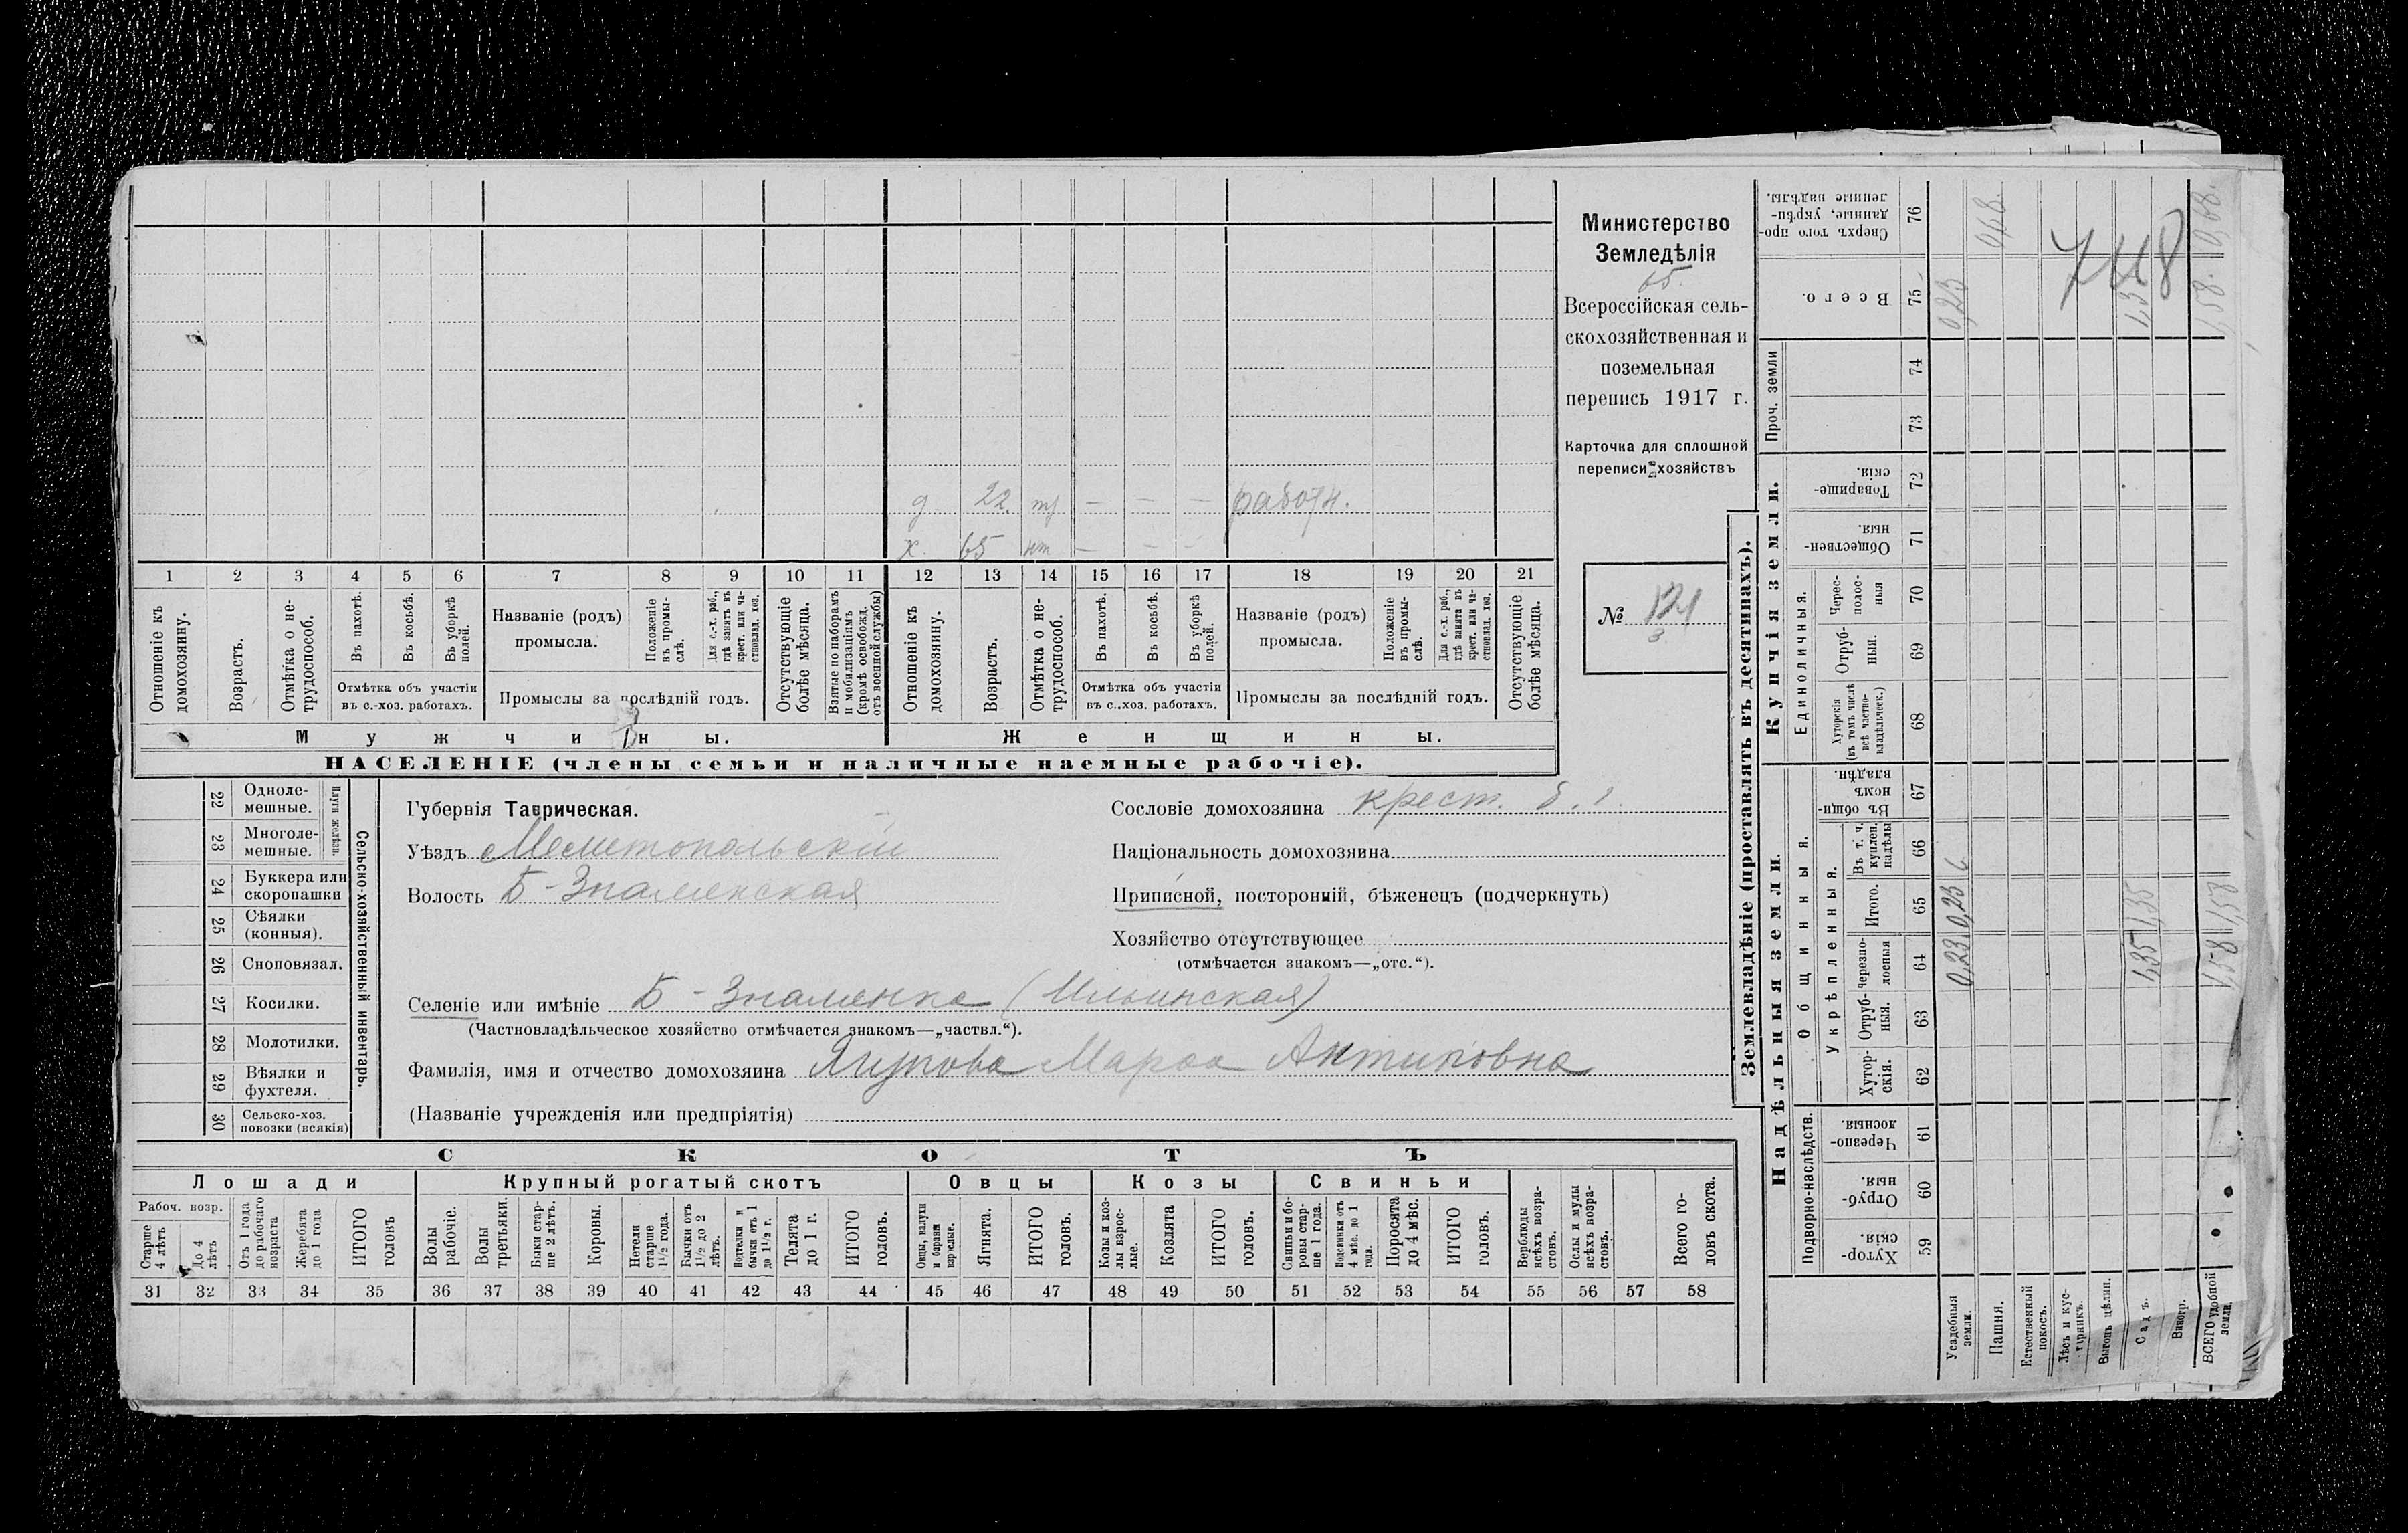 д. 22. тр — — — работн.
х. 65 нт — — —
1 2 3 4 5 6 7 8 9 10 11 12 13 14 15 16 17 18 19 20 21
Отношеніе къ домохозяину.
Возрастъ.
Отмѣтка о не-трудоспособ.
Въ пахотѣ.
Въ косьбѣ.
Въ уборкѣ полей.
Отмѣтка объ участіи
въ с.-хоз. работахъ.
Названіе (родъ)
промысла.
Положеніе въ промы-слѣ.
Для с.-х. раб., гдѣ занятъ въ крест. или ча-стновлад. хоз.
Промыслы за послѣдній годъ.
Отсутствующіе болѣе мѣсяца.
Взятые по наборамъ и мобилизаціямъ (кромѣ освобожд. отъ военной службы)
Отношеніе къ домохозяину.
Возрастъ.
Отмѣтка о не-трудоспособ.
Въ пахотѣ.
Въ косьбѣ.
Въ уборкѣ полей.
Отмѣтка объ участіи
въ с..хоз. работахъ.
Названіе (родъ)
промысла.
Положеніе въ промы-слѣ.
Для с.-х. раб., гдѣ занята въ крест. или ча-стновлад. хоз.
Промыслы за послѣдній годъ.
Отсутствующіе болѣе мѣсяца.
Мужчины.
Женщины.
НАСЕЛЕНІЕ (члены семьи и наличные наемные рабочіе).
Министерство
Земледѣлія
65.
Всероссійская сель-
скохозяйственная и
поземельная
перепись 1917 г.
Карточка для сплошной
переписи хозяйствъ
№ 121
22 Одноле-мешные.
23 Многоле-мешные.
Плуги желѣзн.
24 Буккера или скоропашки
25 Сѣялки (конныя).
26 Сноповязал.
27 Косилки.
28 Молотилки.
29 Вѣялки и фухтеля.
30 Сельско-хоз. повозки (всякія)
Сельско-хозяйственный инвентарь.
Губернія Таврическая.
Уѣздъ Мелитопольскій
Волость Б-Знаменская
Сословіе домохозяина крест.
Національность домохозяина
Приписной, посторонній, бѣженецъ (подчеркнуть)
Хозяйство отсутствующее
(отмѣчается знакомъ—„отс.“).
Селеніе или имѣніе Б-Знаменка (Ильинская)
(Частновладѣльческое хозяйство отмѣчается знакомъ—„частвл.“).
Фамилія, имя и отчество домохозяина Марѳа Антиповна
(Названіе учрежденія или предпріятія)
СКОТЪ
Лошади
Крупный рогатый скотъ
Овцы
Козы
Свиньи
Рабоч. возр.
Старше 4 лѣтъ
До 4 лѣтъ
Отъ 1 года до рабочаго возраста
Жеребята до 1 года
ИТОГО головъ
Волы рабочіе.
Волы третьяки.
Быки стар-ше 2 лѣтъ.
Коровы.
Нетели старше 1½ года.
Бычки отъ 1½ до 2 лѣтъ.
Подтелки и бычки отъ 1 до 1½ г.
Телята до 1 г.
ИТОГО головъ.
Овцы, валухи и бараны взрослые.
Ягнята.
ИТОГО головъ.
Козы и коз-лы взрос-лые.
Козлята
ИТОГО головъ.
Свиньи и бо-ровы стар-ше 1 года.
Подсвинки отъ 4 мѣс. до 1 года.
Поросята до 4 мѣс.
ИТОГО головъ.
Верблюды всѣхъ возра-стовъ.
Ослы и мулы всѣхъ возра-стовъ.
Всего го-ловъ скота.
31 32 33 34 35 36 37 38 39 40 41 42 43 44 45 46 47 48 49 50 51 52 53 54 55 56 57 58
Землевладѣніе (проставлять въ десятинахъ).
Надѣльныя земли.
Купчія земли.
Проч. земли
Подворно-наслѣдств.
Общинныя.
Укрѣпленныя.
Единоличныя.
Хутор-скія. 59
Отруб-ныя. 60
Черезпо-лосныя. 61
Хутор-скія. 62
Отруб-ныя. 63
черезпо-лосныя 64
Итого. 65
Въ т. ч. куплен. надѣлы 66
Въ общи-номъ владѣн. 67
Хуторскія (въ томъ числѣ всѣ частно-владѣльческ.) 68
Отруб-ныя. 69
Черес-полос-ныя 70
Обществен-ныя. 71
Товарище-скія. 72
73
74
Всего. 75
Сверхъ того про-данные, укрѣп-ленные надѣлы. 76
Усадебныя земли. 0,23 0,23 0,23
Пашня.
Естественный покосъ.
Лѣсъ и кус-тарникъ.
Выгонъ цѣлин.
Садъ. 1,35 1,35 1,35
Виногр.
ВСЕГО удобной земли. 1,58 1,58 1,58. 0,68.
748